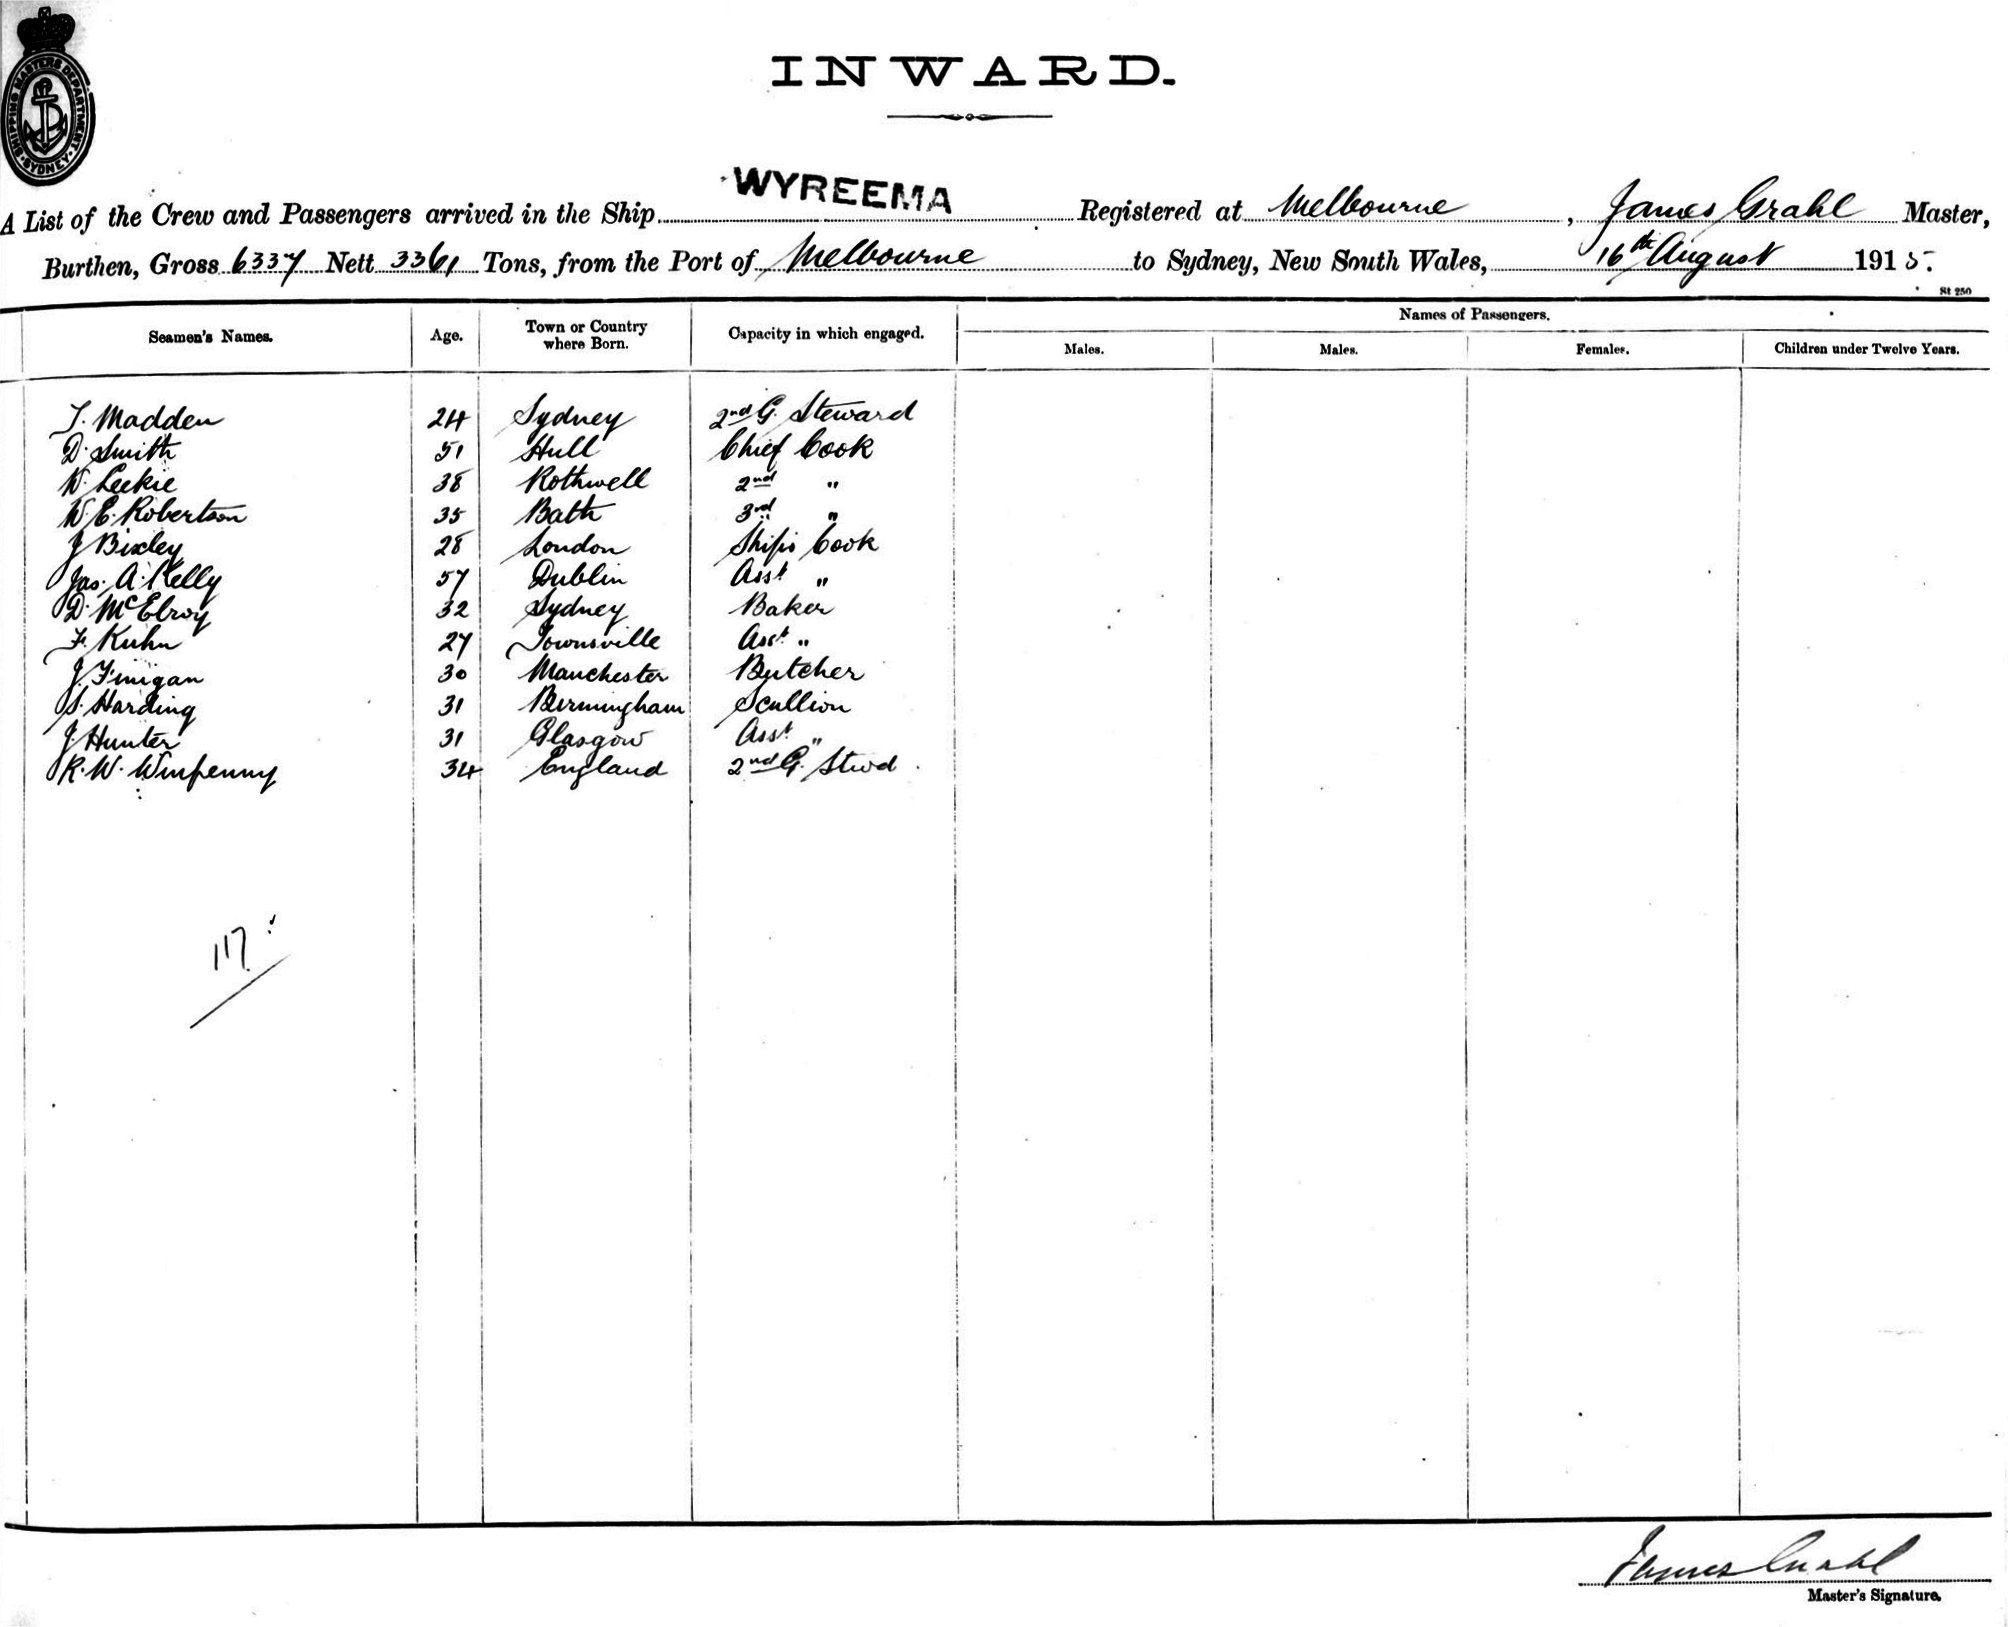 SHIPPING MASTERS DEPARTMENT
SYDNEY
INWARD.
A List of the Crew and Passengers arrived in the Ship WYREEMA Registered at Melbourne, James Grahl Master,
Burthen, Gross 6337 Nett 3361 Tons, from the Port of Melbourne to Sydney, New South Wales, 16th August 1915.
St 250
Seamen's Names. Age. Town or Country where Born. Capacity in which engaged. Names of Passengers.
Males. Males. Females. Children under Twelve Years.
T. Madden 24 Sydney 2nd G. Steward
D. Smith 51 Hull Chief Cook
W. Leckie 38 Rothwell 2nd "
W. E. Robertson 35 Bath 3rd "
J Bixley 28 London Ship's Cook
Jas. A. Kelly 57 Dublin Asst "
D. McElroy 32 Sydney Baker
F. Kuhn 27 Townsville Asst "
J. Finigan 30 Manchester Butcher
S. Harding 31 Birmingham Scullion
J. Hunter 31 Glasgow Asst "
R. W. Winpenny 34 England 2nd G. Stwd
117
James Grahl
Master's Signature.